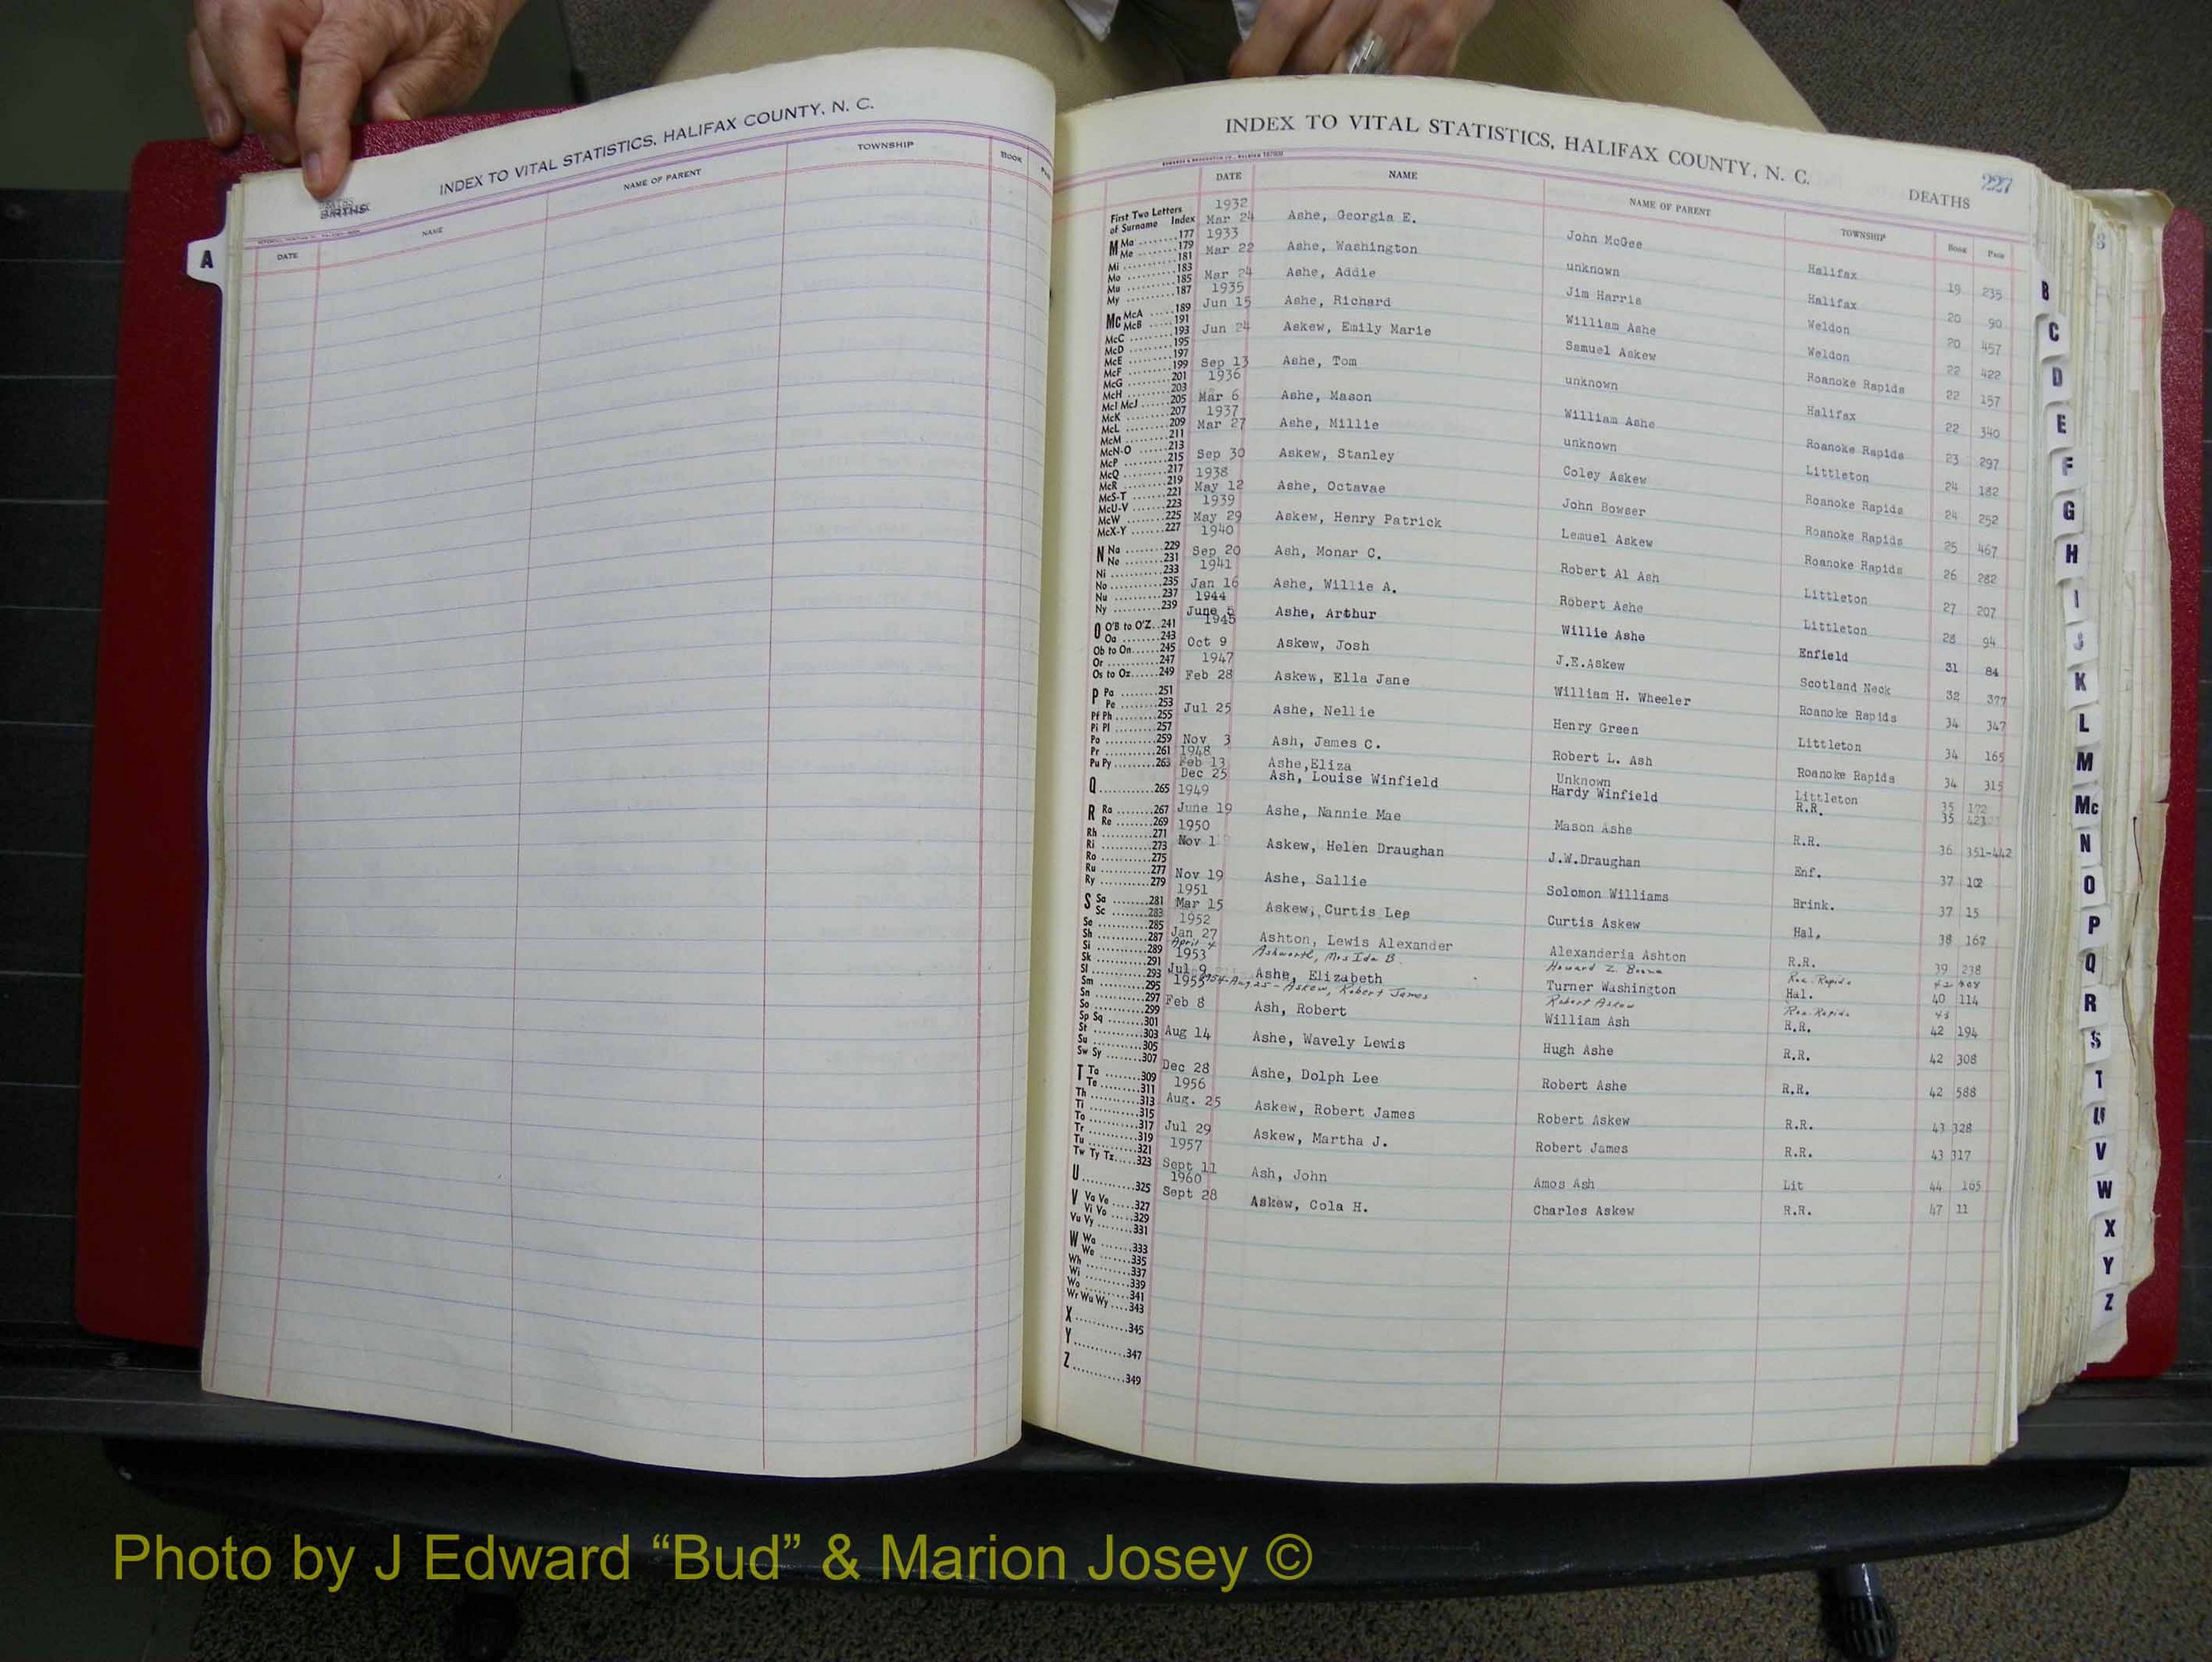 INDEX TO VITAL STATISTICS, HALIFAX COUNTY, N. C.
BIRTHS
DATE NAME NAME OF PARENT TOWNSHIP BOOK
A
INDEX TO VITAL STATISTICS, HALIFAX COUNTY, N. C. 227
DEATHS
DATE NAME NAME OF PARENT TOWNSHIP Book Page
1932
Mar 24 Ashe, Georgia E. John McGee Halifax 19 235
1933
Mar 22 Ashe, Washington unknown Halifax 20 90
Mar 24 Ashe, Addie Jim Harris Weldon 20 457
1935
Jun 15 Ashe, Richard William Ashe Weldon 22 422
Jun 24 Askew, Emily Marie Samuel Askew Roanoke Rapids 22 157
Sep 13 Ashe, Tom unknown Halifax 22 340
1936
Mar 6 Ashe, Mason William Ashe Roanoke Rapids 23 297
1937
Mar 27 Ashe, Millie unknown Littleton 24 182
Sep 30 Askew, Stanley Coley Askew Roanoke Rapids 24 252
1938
May 12 Ashe, Octavae John Bowser Roanoke Rapids 25 467
1939
May 29 Askew, Henry Patrick Lemuel Askew Roanoke Rapids 26 282
1940
Sep 20 Ash, Monar C. Robert Al Ash Littleton 27 207
1941
Jan 16 Ashe, Willie A. Robert Ashe Littleton 28 94
1944
June 5 Ashe, Arthur Willie Ashe Enfield 31 84
1945
Oct 9 Askew, Josh J.E.Askew Scotland Neck 32 377
1947
Feb 28 Askew, Ella Jane William H. Wheeler Roanoke Rapids 34 347
Jul 25 Ashe, Nellie Henry Green Littleton 34 165
Nov 3 Ash, James C. Robert L. Ash Roanoke Rapids 34 315
1948
Feb 13 Ashe,Eliza Unknown Littleton 35 172
Dec 25 Ash, Louise Winfield Hardy Winfield R.R. 35 423
1949
June 19 Ashe, Nannie Mae Mason Ashe R.R. 36 351-442
1950
Nov 1 Askew, Helen Draughan J.W.Draughan Enf. 37 102
Nov 19 Ashe, Sallie Solomon Williams Brink. 37 15
1951
Mar 15 Askew, Curtis Lee Curtis Askew Hal, 38 167
1952
Jan 27 Ashton, Lewis Alexander Alexanderia Ashton R.R. 39 238
April 4 Ashworth, Mrs Ida B. Howard Z. Roa. Rapids 42
1953
Jul 9 Ashe, Elizabeth Turner Washington Hal. 40 114
1954-Aug 25-Askew, Robert James Robert Askew Roa. Rapids 43
1955
Feb 8 Ash, Robert William Ash R.R. 42 194
Aug 14 Ashe, Wavely Lewis Hugh Ashe R.R. 42 308
Dec 28 Ashe, Dolph Lee Robert Ashe R.R. 42 588
1956
Aug. 25 Askew, Robert James Robert Askew R.R. 43 328
Jul 29 Askew, Martha J. Robert James R.R. 43 317
1957
Sept 11 Ash, John Amos Ash Lit 44 165
1960
Sept 28 Askew, Cola H. Charles Askew R.R. 47 11
First Two Letters
of Surname Index
M Ma ........177
Me ........179
Mi ........181
Mo ........183
Mu ........185
My ........187
Mc McA ......189
McB ......191
McC ......193
McD ......195
McE ......197
McF ......199
McG ......201
McH ......203
McI McJ ......205
McK ......207
McL ......209
McM ......211
McN-O ......213
McP ......215
McQ ......217
McR ......219
McS-T ......221
McU-V ......223
McW ......225
McX-Y ......227
N Na ........229
Ne ........231
Ni ........233
No ........235
Nu ........237
Ny ........239
O O'B to O'Z..241
Oa ........243
Ob to On......245
Or ........247
Os to Oz......249
P Pa ........251
Pe ........253
Pf Ph ........255
Pi Pl ........257
Po ........259
Pr ........261
Pu Py ........263
Q ........265
R Ra ........267
Re ........269
Rh ........271
Ri ........273
Ro ........275
Ru ........277
Ry ........279
S Sa ........281
Sc ........283
Se ........285
Sh ........287
Si ........289
Sk ........291
Sl ........293
Sm ........295
Sn ........297
So ........299
Sp Sq ........301
St ........303
Su ........305
Sw Sy ........307
T Ta ........309
Te ........311
Th ........313
Ti ........315
To ........317
Tr ........319
Tu ........321
Tw Ty Tz.....323
U ........325
V Va Ve .....327
Vi Vo .....329
Vu Vy .....331
W Wa ......333
We ......335
Wh ......337
Wi ......339
Wo ......341
Wr Wu Wy ....343
X ........345
Y ........347
Z ........349
B
C
D
E
F
G
H
I
J
K
L
M
Mc
N
O
P
Q
R
S
T
U
V
W
X
Y
Z
Photo by J Edward “Bud” & Marion Josey ©